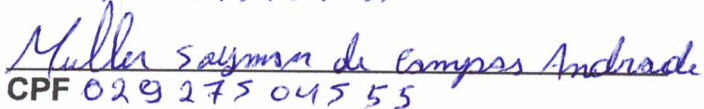 Muller Saymon de Campos Andrade
CPF 029 275 045 55